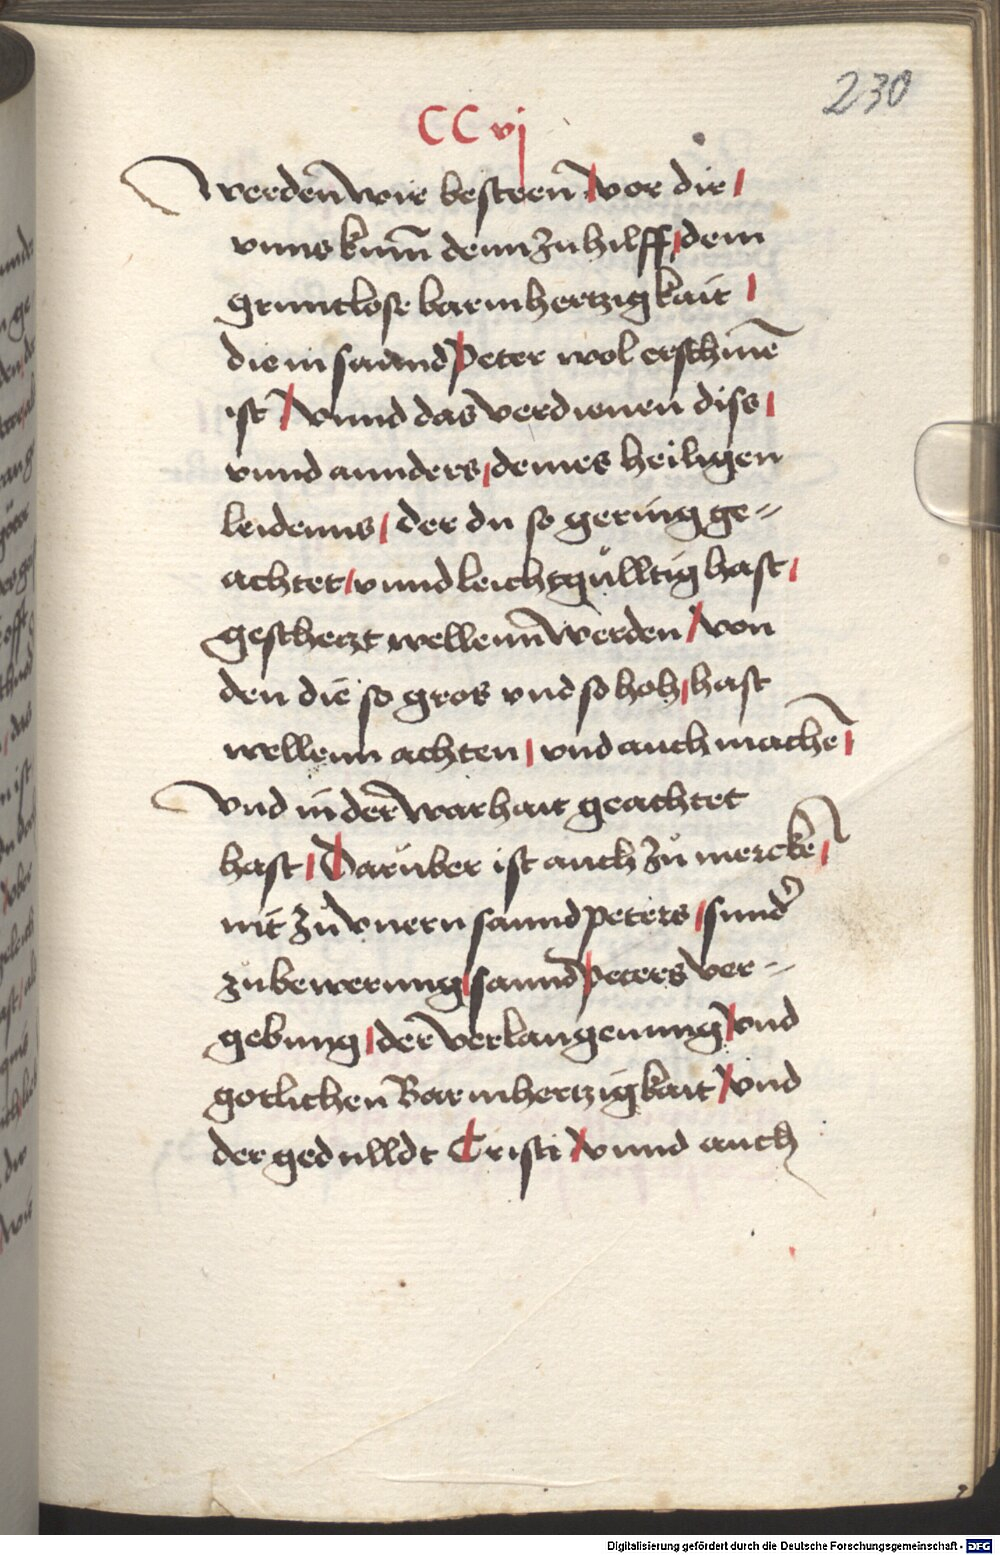 230
CCvj
werden̄ wir besteen̄ / vor dir /
vnns kum̄ denn zu hilff / dein
gruntlose barmhertzigkait /
die in sannd Peter wol erschinē
ist / vnnd das verdienen diss /
vnnd annders / deines heiligen
leidenns / der du so gering ge-
achtet / vnnd leichtgülltig hast /
geschetzt wellenn̄ werden / von
den die so gros vnd so hoh / hast
wellenn achten / vnd auch machē /
vnd in der̄ warhait geachtet
hast / Darüber ist auch zů mercke̅ /
nit zů vnern sannd peters / sund̉
zu bewerung / sannd peters ver-
gebung / der̄ verlangenung / vnd
gotlichen Barmhertzigkait / vnd
der gedulldt Cristi / vnnd auch
Digitalisierung gefördert durch die Deutsche Forschungsgemeinschaft - DFG